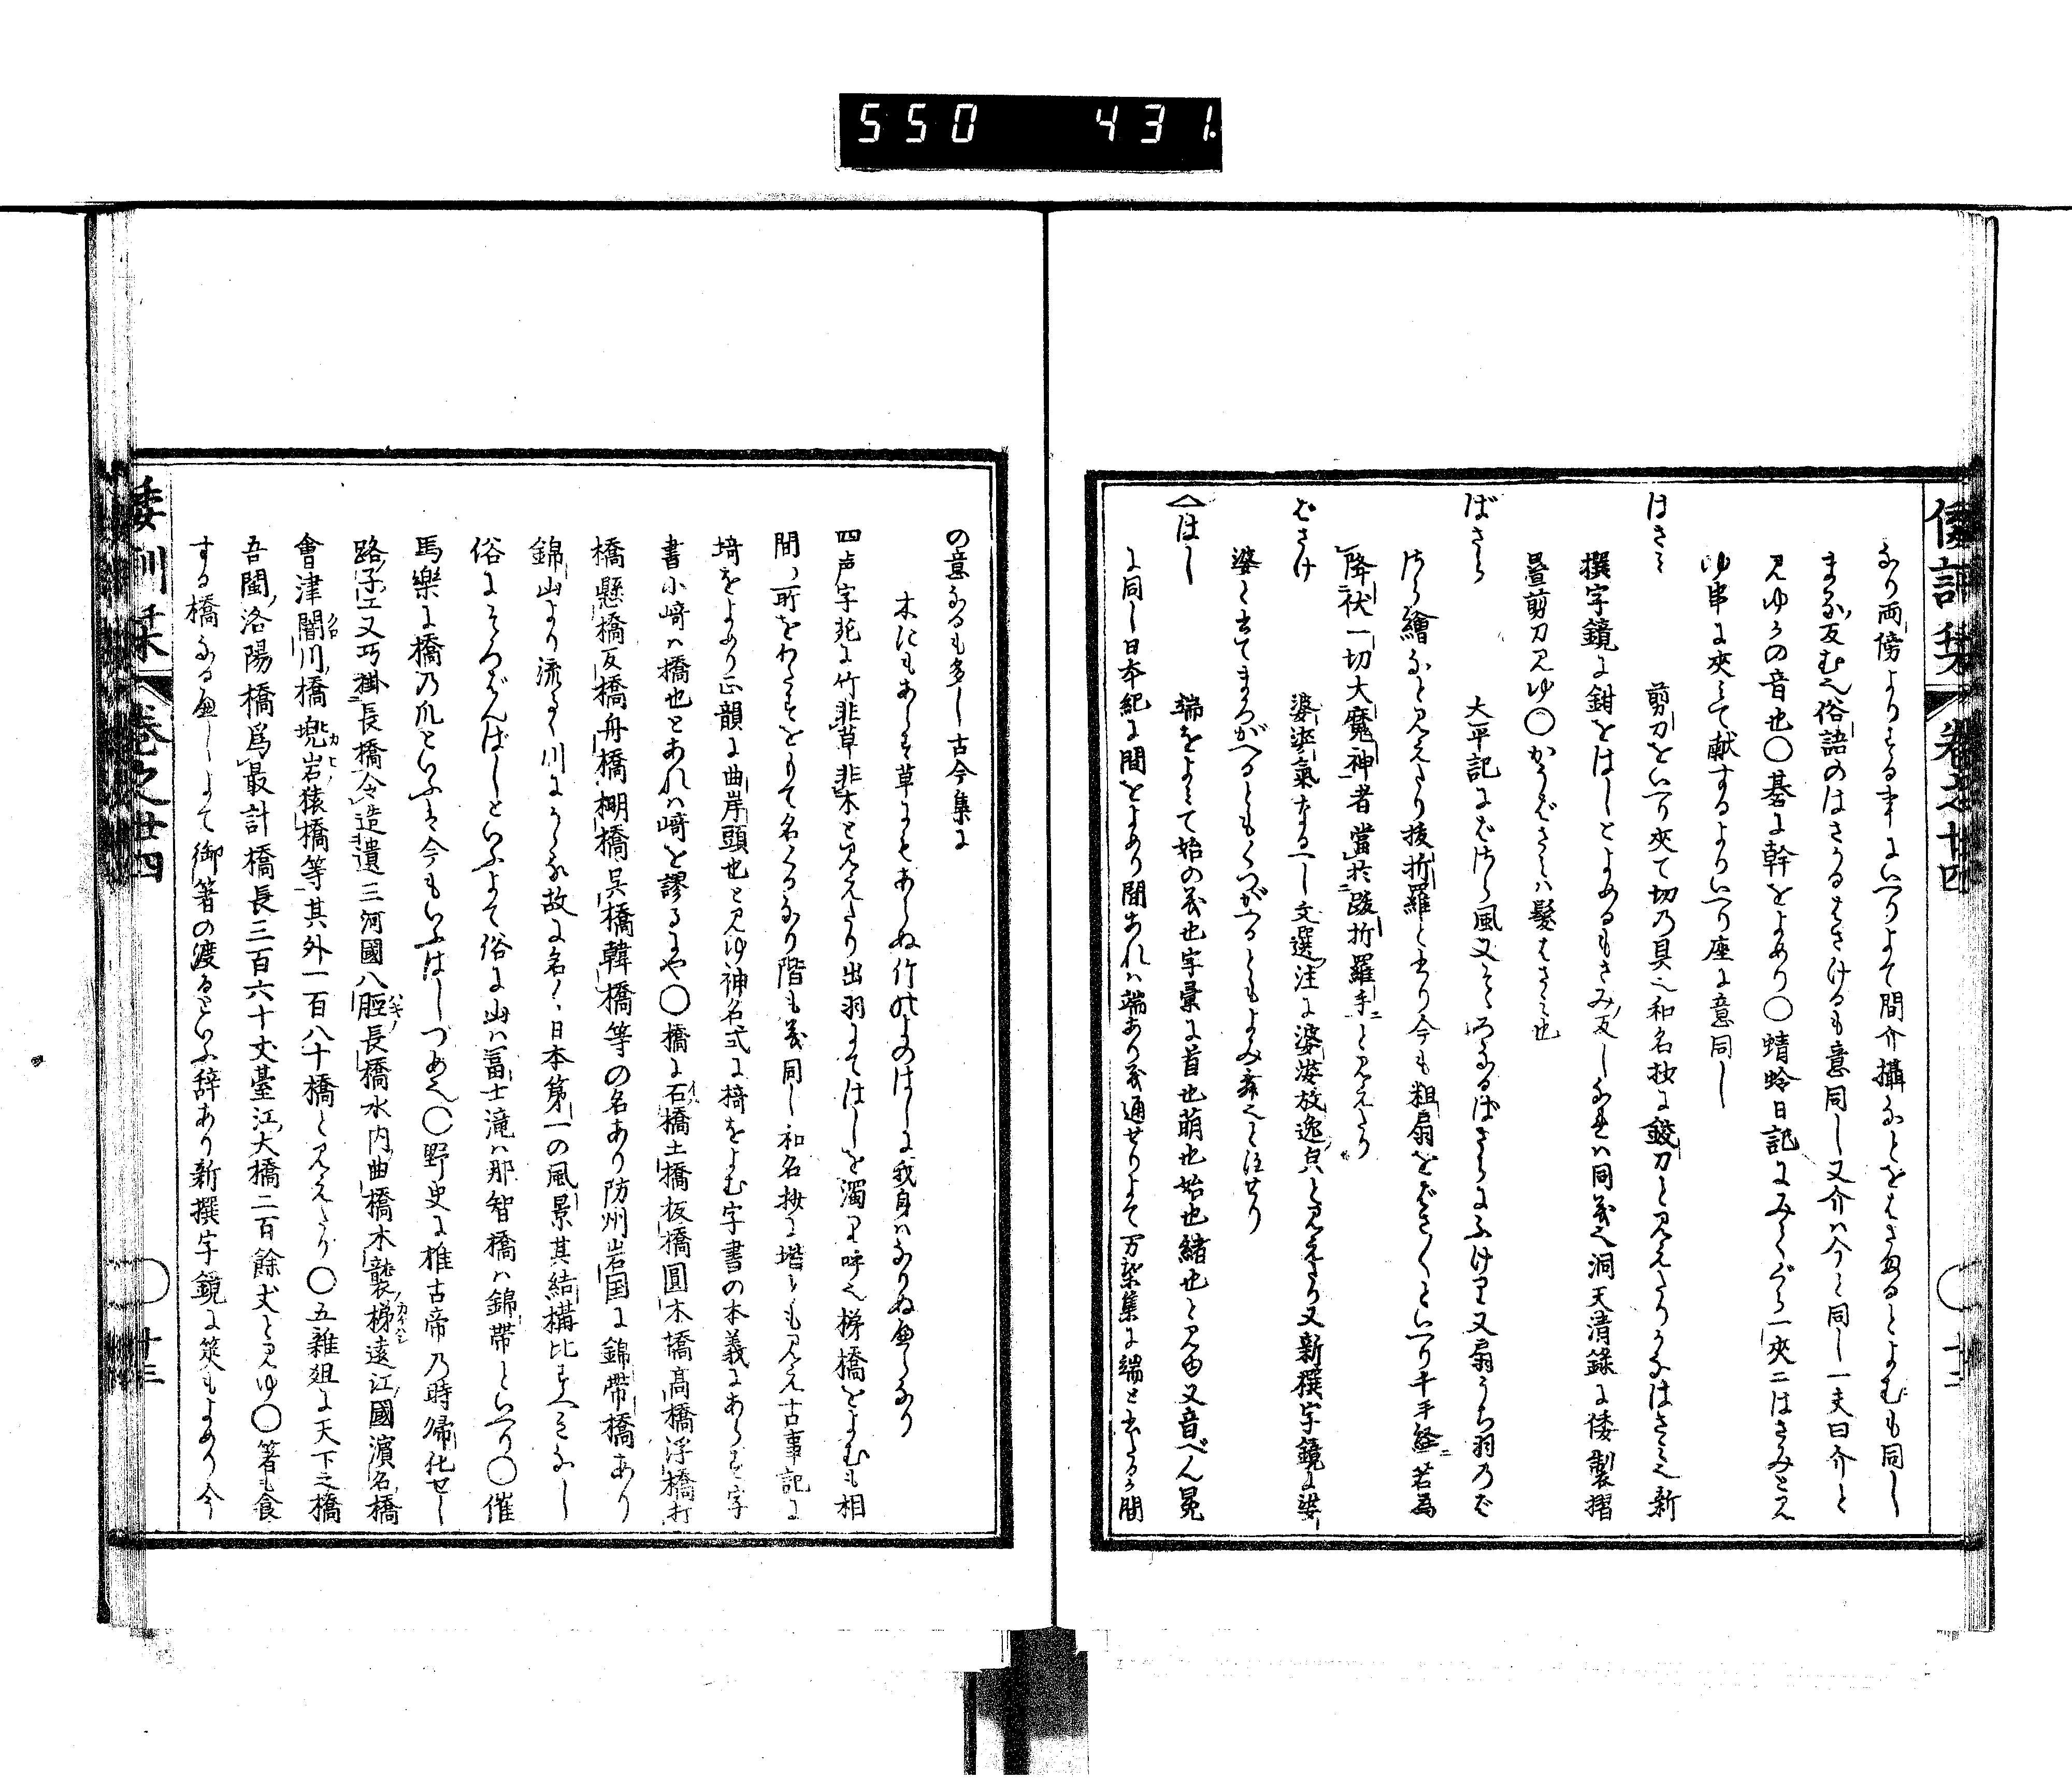 550 431
倭訓栞 卷之廿四
なり両傍よりする事にいへりよて間介攝なとをはさむるとよむも同し
まか反む也俗語のはさかるはさけるも意同し又介は今と同し一夫曰介と
見ゆ
の音也〇碁に幹をよめり〇蜻蛉日記にみくぐら一夾二はさみと見え
ゆ串に夾みて献するよりいへり座に意同し
はさみ 剪刀をいへり夾て切の具也和名抄に鉸刀と見えたりかなはさみ也新
撰字鏡に鉗をはしとよめるもさみ反しなれは同義也洞天清録に倭製摺
疊剪刀見ゆ〇かうばさみは髮はさみ也
ばさら 大平記にばさら風又そゝろなるばさらにふけり又扇うち羽のば
さら繪なと見えたり抜折羅と書り今も粗扇をばさ〱といへり千手經ニ若為
降伏一切大魔神者當於跋折羅手ニと見えたり
ばさけ 婆娑氣なるへし文選注に婆娑放逸皃と見えたり又新撰字鏡に婆
婆と書てまろがへるともくつがへるともよみ舞也と注せり
はし 端をよみて始の義也字彙に首也萌也始也緒也と見ゆ又音べん冕
に同し日本紀に間をよめり間あれは端あり義通せりよて万葉集に端と書たるも間
の意なるも多し古今集に
木にもあらす草にもあらぬ竹のよのはしに我身はなりぬへらなり
四声字苑に竹非草非木と見えたり出羽にてはしを濁りて呼也梯橋をよむも相
間所をわたすをもて名くるなり階も義同し和名抄に堦も見え古事記に
埼をよめり正韻に曲岸頭也と見ゆ神名式に椅をよむ字書の本義にあらす字
書小﨑は橋也とあれは﨑を謬るにや〇橋に石橋土橋板橋圓木橋高橋浮橋打
橋懸橋反橋舟橋棚橋呉橋韓橋等の名あり防州岩国に錦帶橋あり
錦山より流るゝ川にかゝる故に名く日本第一の風景其結構比すへきなし
俗にそろばんばしといふよて俗に山は冨士滝は那智橋は錦帶といへり〇催
馬樂に橋の爪といふは今もいふはしづめ也〇野史に推古帝の時歸化せし
路子工又巧掛長橋令造遣三河國八脛長橋水内曲橋木襲梯遠江國濱名橋
會津闇川橋兠岩猿橋等其外一百八十橋と見えたり〇五雜俎に天下之橋
吾閩洛陽橋爲最計橋長三百六十丈臺江大橋二百餘丈と見ゆ〇箸も食
する橋なるへしよて御箸の渡るといふ辞あり新撰字鏡に筴もよめり今
倭訓栞 卷之廿四 十三